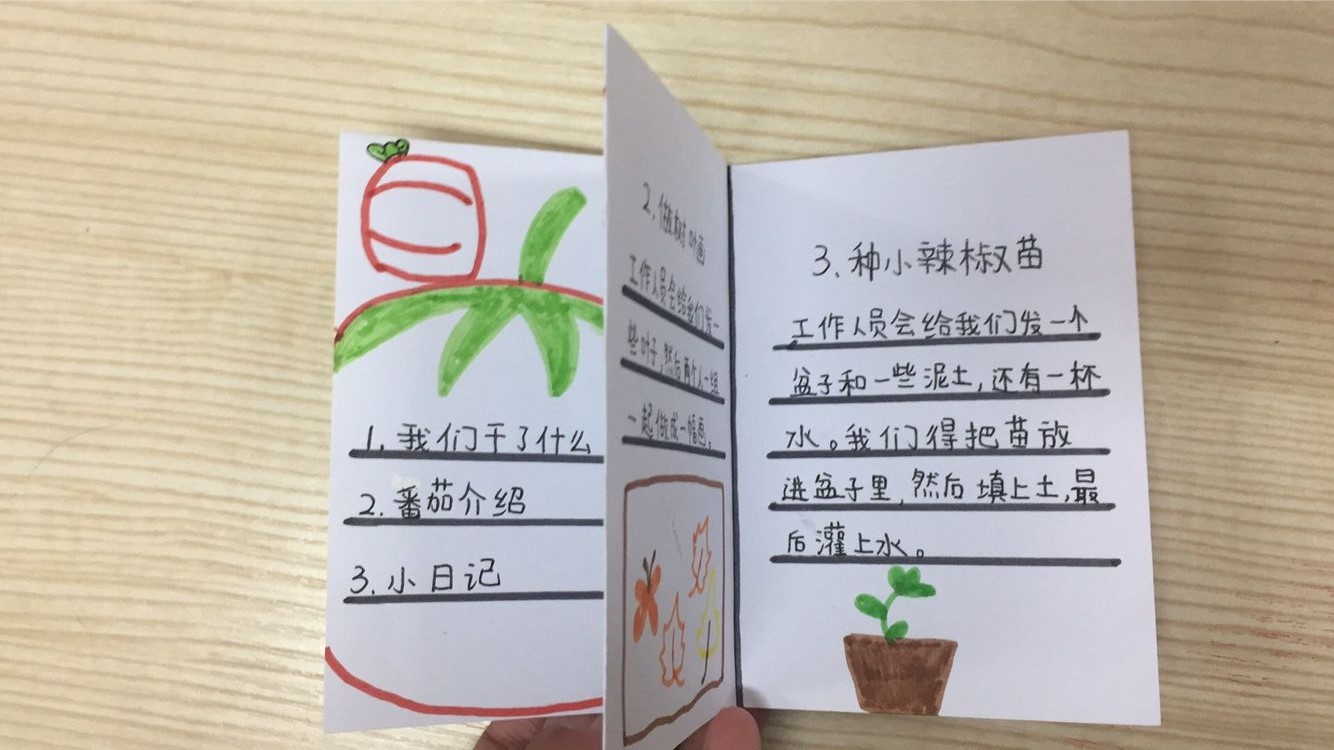 1.我们干了什么
2.番茄介绍
3.小日记
2.做树叶画
工作人员会给我们发一
些叶子,然后两个人一组
一起做成一幅画。
3.种小辣椒苗
工作人员会给我们发一个
盆子和一些泥土,还有一杯
水。我们得把苗放
进盆子里,然后填上土,最
后灌上水。